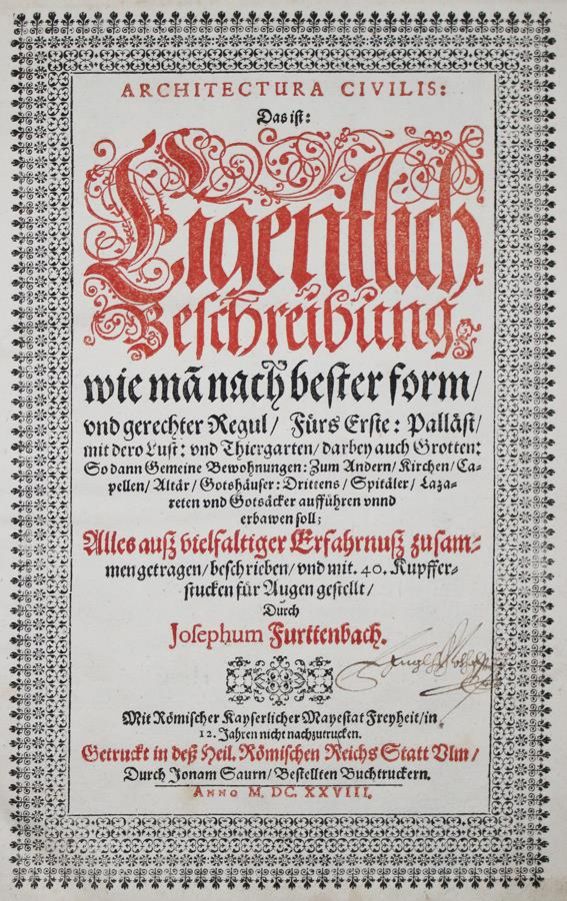 ARCHITECTURA CIVILIS:
Das iſt:
Eigentlich
Beſchreibung
wie mā nach beſter form/
vnd gerechter Regul/ Fürs Erſte: Palläſt/
mit dero Luſt: vnd Thiergarten/ darbey auch Grotten:
So dann Gemeine Bewohnungen: Zum Andern/ Kirchen/ Ca-
pellen/ Altär/ Gotshäuſer: Drittens/ Spitäler/ Laza-
reten vnd Gotsäcker aufführen vnnd
erbawen ſoll;
Alles auß vielfaltiger Erfahrnuß zuſam-
mengetragen/ beſchrieben/ vnd mit. 40. Kupffer-
ſtucken für Augen geſtellt/
Durch
Joſephum Furttenbach.
Mit Römiſcher Kayſerlicher Mayeſtat Freyheit/ in
12. Jahren nicht nachzutrucken.
Getruckt in deß Heil. Römiſchen Reichs Statt Vlm/
Durch Jonam Saurn/ Beſtellten Buchtruckern.
ANNO M. DC. XXVIII.